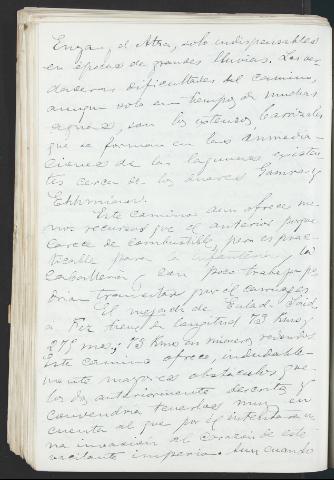 Enza, el Atra, solo indispensables
en épocas de grandes lluvias. Las ver
daderas dificultades del camino,
aunque solo en tiempo de muchas
aguas, son los extensos barrizales
que se forman en las inmedia
ciones de las lagunas existen
tes cerca de los duares Gamra y
Este camino aun ofrece me
nos recursos que el anterior porque
carece de combustible, pero es prac
ticable para la infantería y la
caballería, y con poco trabajo po
drian transitar por el carruajes
El mejor de Sulad. Said,
a Fez tiene en longitud 73 Kms,
279 ms; 73 Kms en números redondos
Este camino ofrece, indudable-
mente mayores obstaculos que
los dos anteriormente descritos y
convendrá tenerlos muy en
cuenta al que por él intentara u-
na invasion al corazon de este
vacilante imperio. Aun cuando